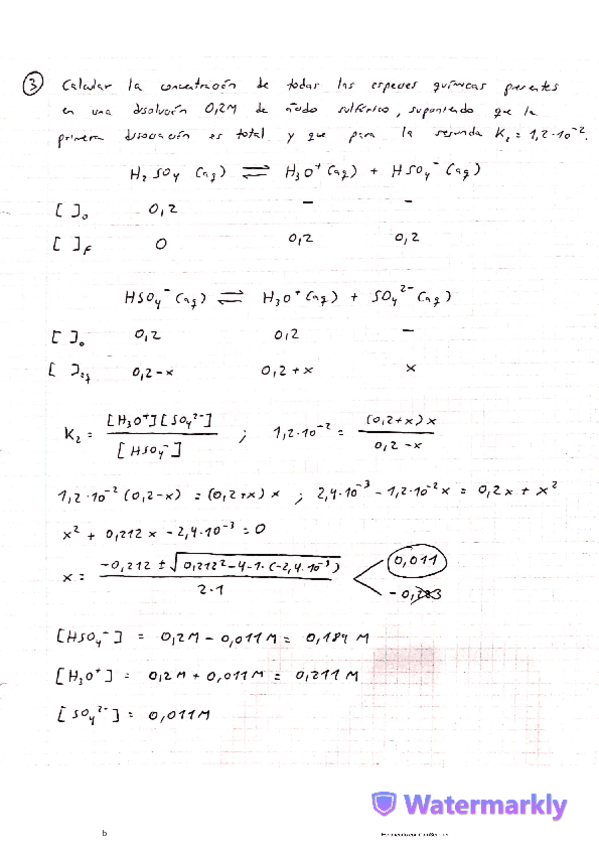 ③ Calcular la concentración de todas las especies químicas presentes
en una disolución 0,2M de ácido sulfúrico, suponiendo que la
primera disociación es total y que para la segunda K₂ = 1,2·10⁻².
H₂SO₄ (aq) ⇌ H₃O⁺(aq) + HSO₄⁻(aq)
[ ]₀ 0,2 – –
[ ]f 0 0,2 0,2
HSO₄⁻(aq) ⇌ H₃O⁺(aq) + SO₄²⁻(aq)
[ ]₀ 0,2 0,2 –
[ ]eq 0,2-x 0,2+x x
K₂ = [H₃O⁺][SO₄²⁻] / [HSO₄⁻] ; 1,2·10⁻² = (0,2+x)x / 0,2-x
1,2·10⁻²(0,2-x) = (0,2+x)x ; 2,4·10⁻³ - 1,2·10⁻²x = 0,2x + x²
x² + 0,212x - 2,4·10⁻³ = 0
x = -0,212 ± √(0,212² - 4·1·(-2,4·10⁻³)) / 2·1 < 0,011
[HSO₄⁻] = 0,2M - 0,011M = 0,189 M
[H₃O⁺] = 0,2M + 0,011M = 0,211M
[SO₄²⁻] = 0,011M
Watermarkly